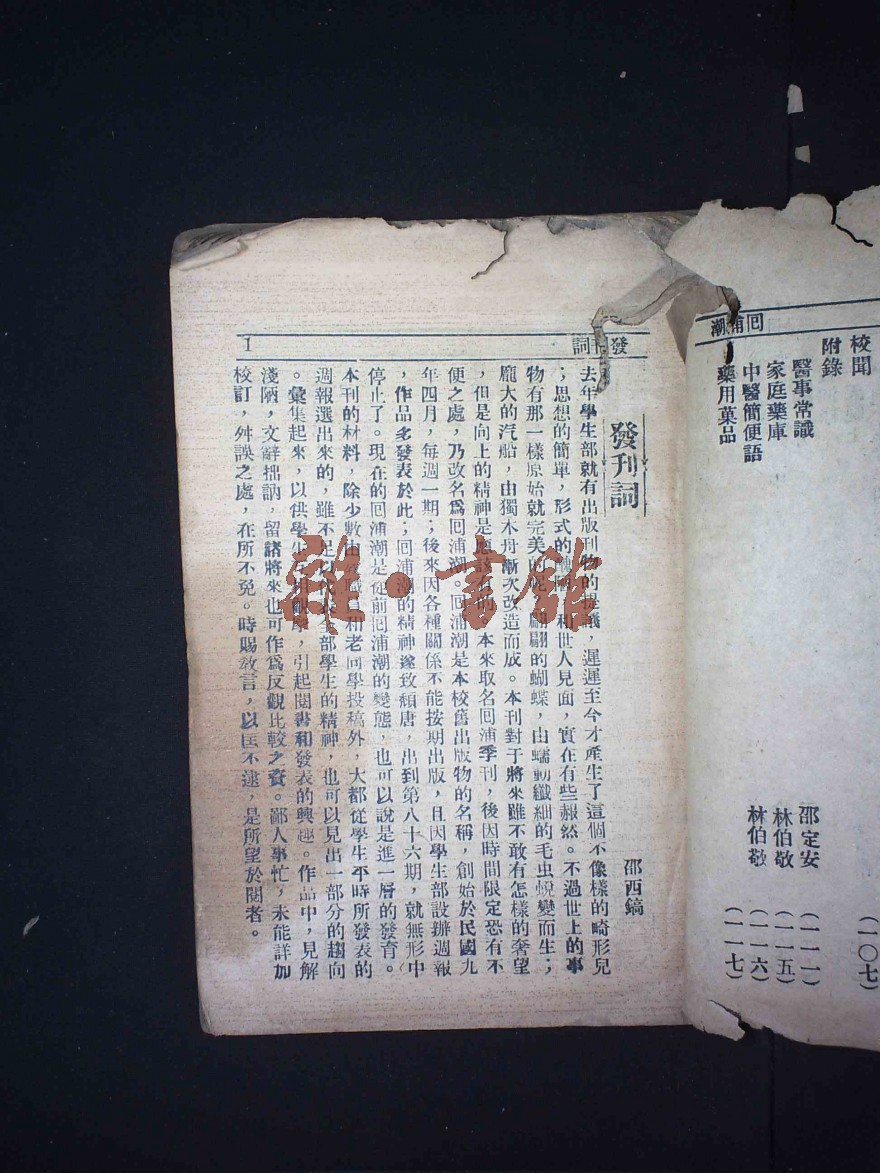 回浦潮
校聞 (一〇七)
附錄
醫事常識 邵定安 (一一一)
家庭藥庫 林伯敬 (一一五)
中醫簡便語 林伯敬 (一一六)
藥用菓品 (一一七)
發刊詞
1
發刊詞
邵西鎬
去年學生部就有出版刊物的提議,遲遲至今才產生了這個不像樣的畸形兒
;思想的簡單,形式的和世人見面,實在有些赧然。不過世上的事
物有那一樣原始就完美的呢?翩翩的蝴蝶,由蠕動纖細的毛虫蛻變而生;
龐大的汽船,由獨木舟漸次改造而成。本刊對于將來雖不敢有怎樣的奢望
,但是向上的精神是應該有的。本來取名回浦季刊,後因時間限定恐有不
便之處,乃改名爲回浦潮。回浦潮是本校舊出版物的名稱,創始於民國九
年四月,每週一期;後來因各種關係不能按期出版,且因學生部設辦週報
,作品多發表於此;回浦潮的精神遂致頹唐,出到第八十六期,就無形中
停止了。現在的回浦潮是從前回浦潮的變態,也可以說是進一層的發育。
本刊的材料,除少數由和老同學投稿外,大都從學生平時所發表的
週報選出來的,雖不足以代全部學生的精神,也可以見出一部分的趨向
。彙集起來,以供學生互相觀摩,引起閱書和發表的興趣。作品中,見解
淺陋,文辭拙訥,留諸將來也可作爲反觀比較之資。鄙人事忙,未能詳加
校訂,舛誤之處,在所不免。時賜教言,以匡不逮,是所望於閱者。
雜·書館